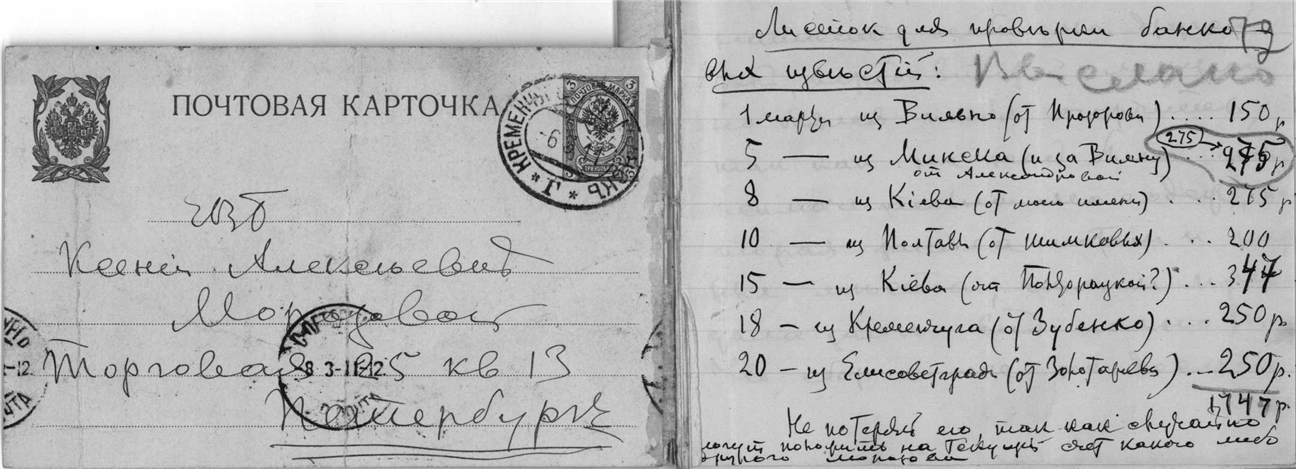 ПОЧТОВАЯ КАРТОЧКА
КРЕМЕНЧУГЪ
ЕВБ
Ксеніи Алексѣевнѣ
Морозовой
8 3-11-12
Торговая 25 кв 13
Петербургъ
Листок для провѣрки банко
вых извѣстій: Выслано
1 марта из Вильно (от Прозорова) .... 150 р
275
5 — из Минска (и за Вильну) ... 275 р
от Александровой
8 — из Кіева (от моего имени) ... 275 р
10 — из Полтавы (от Шимковых) ... 200
15 — из Кіева (от ?) ... 347
18 — из Кременчуга (от Зубенко) ... 250 р
20 — из Елисаветграда (от Золотарева) ... 250 р.
1747 р
Не потеряй его, так как случайно
могут положить на текущій счет какого либо
другого Морозова